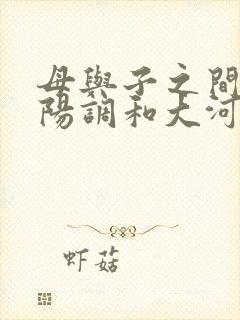 母與子之間
陽調和大河
虾菇